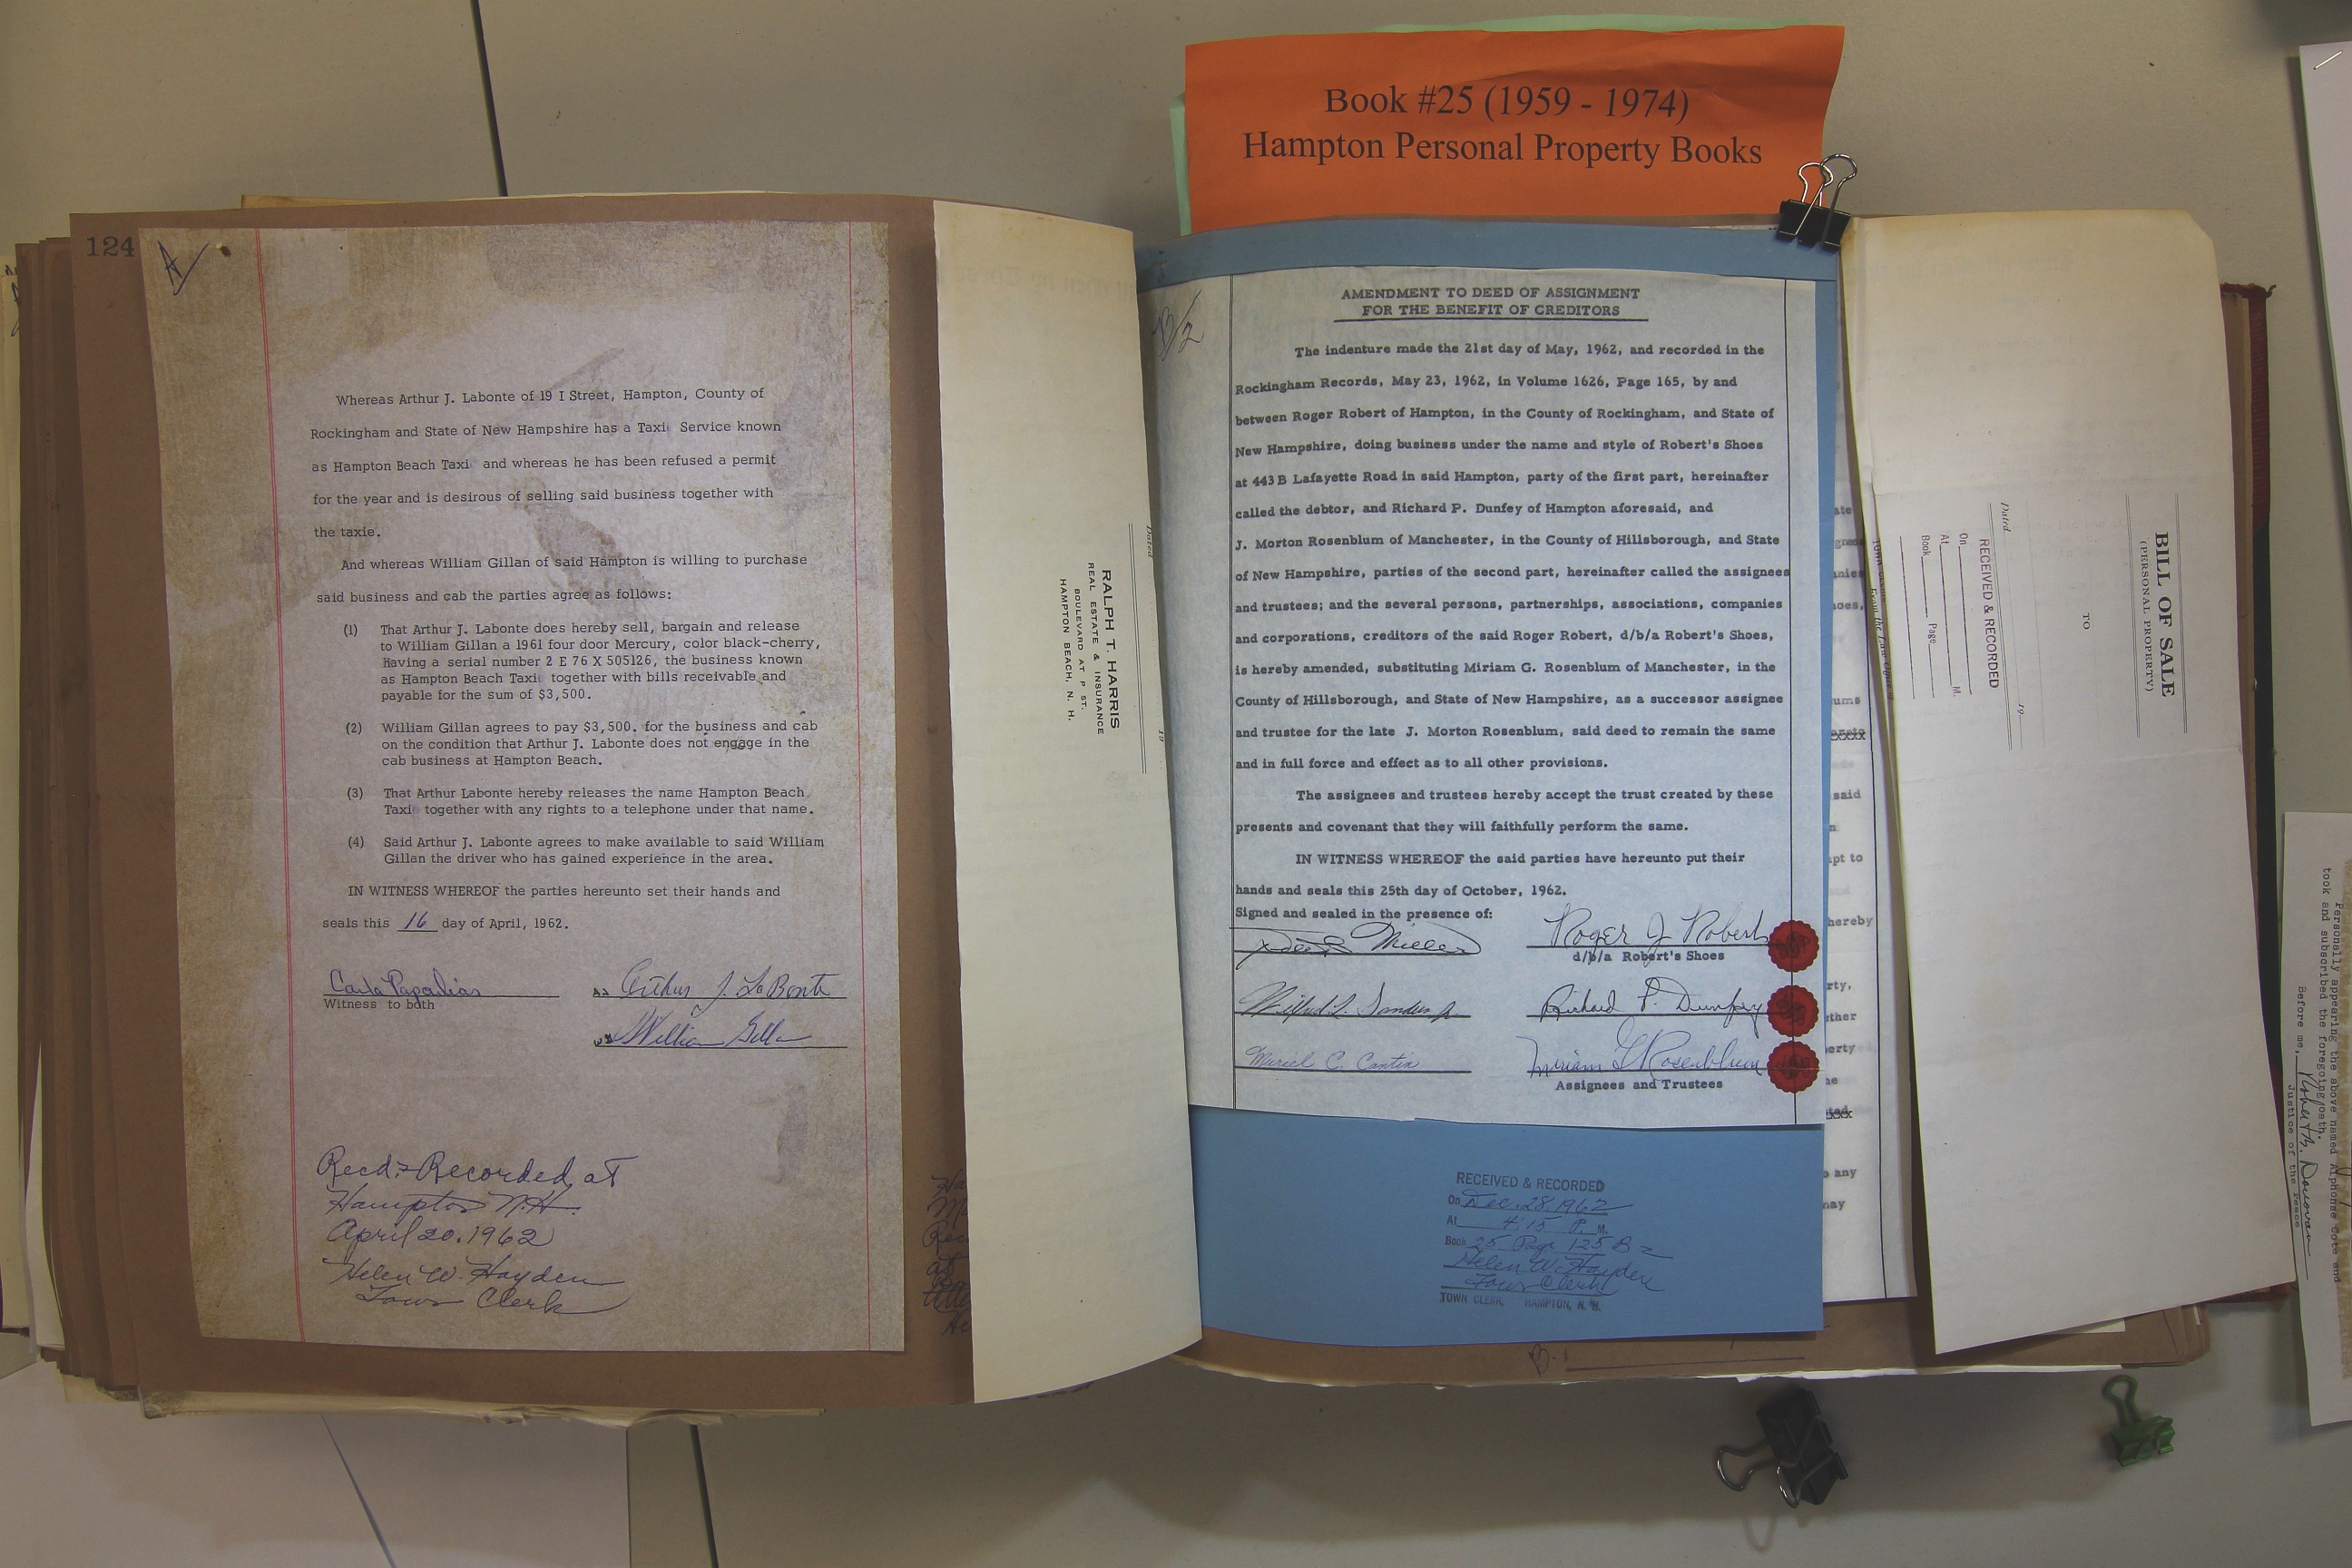 Book #25 (1959 - 1974)
Hampton Personal Property Books
124
A
Whereas Arthur J. Labonte of 19 I Street, Hampton, County of
Rockingham and State of New Hampshire has a Taxi Service known
as Hampton Beach Taxi and whereas he has been refused a permit
for the year and is desirous of selling said business together with
the taxie.
And whereas William Gillan of said Hampton is willing to purchase
said business and cab the parties agree as follows:
(1) That Arthur J. Labonte does hereby sell, bargain and release
to William Gillan a 1961 four door Mercury, color black-cherry,
Having a serial number 2 E 76 X 505126, the business known
as Hampton Beach Taxi together with bills receivable and
payable for the sum of $3,500.
(2) William Gillan agrees to pay $3,500. for the business and cab
on the condition that Arthur J. Labonte does not engage in the
cab business at Hampton Beach.
(3) That Arthur Labonte hereby releases the name Hampton Beach
Taxi together with any rights to a telephone under that name.
(4) Said Arthur J. Labonte agrees to make available to said William
Gillan the driver who has gained experience in the area.
IN WITNESS WHEREOF the parties hereunto set their hands and
seals this 16 day of April, 1962.
Carla Papailias
Witness to both
Arthur J. LaBonte
William Gillan
Recd & Recorded at
Hampton N.H.
April 20, 1962
Helen W. Hayden
Town Clerk
Dated 19
RALPH T. HARRIS
REAL ESTATE & INSURANCE
BOULEVARD AT P ST.
HAMPTON BEACH, N. H.
B/2
AMENDMENT TO DEED OF ASSIGNMENT
FOR THE BENEFIT OF CREDITORS
The indenture made the 21st day of May, 1962, and recorded in the
Rockingham Records, May 23, 1962, in Volume 1626, Page 165, by and
between Roger Robert of Hampton, in the County of Rockingham, and State of
New Hampshire, doing business under the name and style of Robert's Shoes
at 443 B Lafayette Road in said Hampton, party of the first part, hereinafter
called the debtor, and Richard P. Dunfey of Hampton aforesaid, and
J. Morton Rosenblum of Manchester, in the County of Hillsborough, and State
of New Hampshire, parties of the second part, hereinafter called the assignees
and trustees; and the several persons, partnerships, associations, companies
and corporations, creditors of the said Roger Robert, d/b/a Robert's Shoes,
is hereby amended, substituting Miriam G. Rosenblum of Manchester, in the
County of Hillsborough, and State of New Hampshire, as a successor assignee
and trustee for the late J. Morton Rosenblum, said deed to remain the same
and in full force and effect as to all other provisions.
The assignees and trustees hereby accept the trust created by these
presents and covenant that they will faithfully perform the same.
IN WITNESS WHEREOF the said parties have hereunto put their
hands and seals this 25th day of October, 1962.
Signed and sealed in the presence of:
Miller
Roger J Robert
d/b/a Robert's Shoes
Wilfred L. Sanders Jr
Richard P. Dunfey
Muriel C. Cantin
Miriam G Rosenblum
Assignees and Trustees
RECEIVED & RECORDED
On Dec. 28, 1962
At 4:15 P. M.
Book 25 Page 125 B-2
Helen W. Hayden
Town Clerk
TOWN CLERK, HAMPTON, N. H.
said
pt to
hereby
any
BILL OF SALE
(PERSONAL PROPERTY)
TO
Dated 19
RECEIVED & RECORDED
On
At M.
Book Page
From the Law Office of
Personally appearing the above named Alphonse Cote and
took and subscribed the foregoing oath.
Before me, Robert B. Donovan
Justice of the Peace